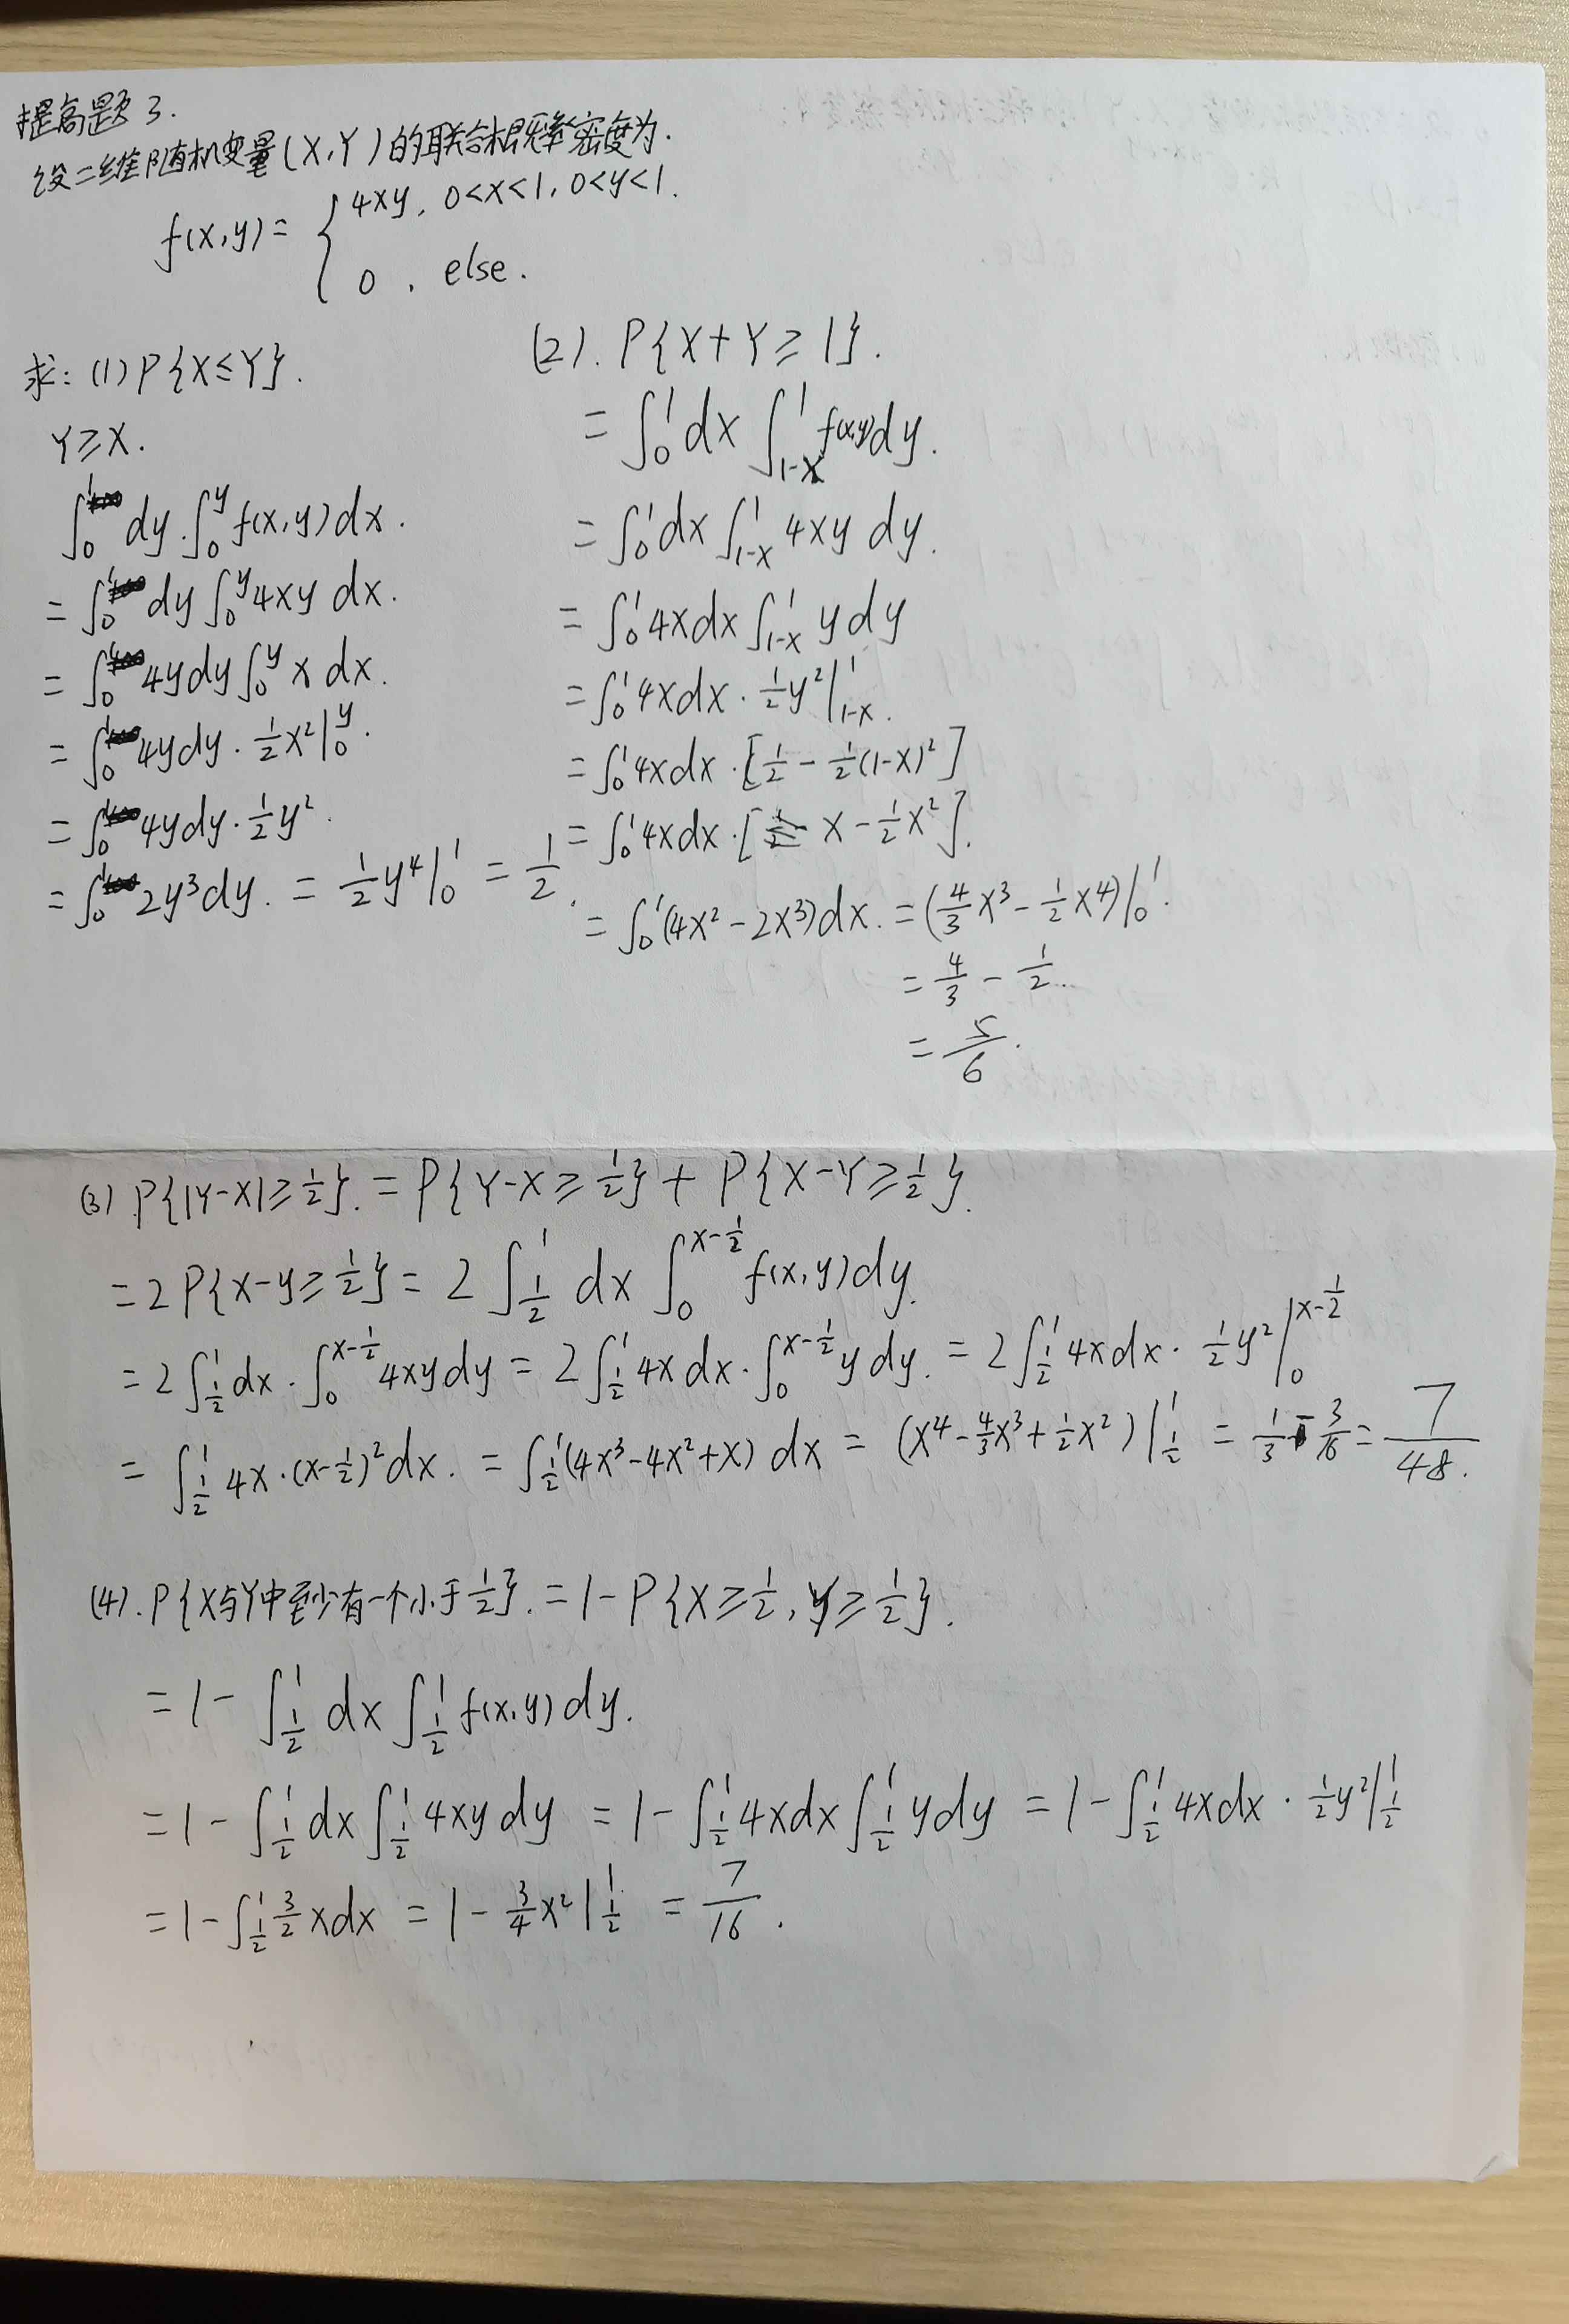 提高题 3.
设二维随机变量(X,Y)的联合概率密度为.
f(x,y)= { 4xy, 0<x<1, 0<y<1.
0 , else.
求: (1) P{X≤Y}.
Y≥X.
∫₀¹ dy·∫₀^y f(x,y)dx.
= ∫₀¹ dy ∫₀^y 4xy dx.
= ∫₀¹ 4ydy ∫₀^y x dx.
= ∫₀¹ 4ydy · 1/2 x²|₀^y.
= ∫₀¹ 4ydy · 1/2 y².
= ∫₀¹ 2y³dy. = 1/2 y⁴|₀¹ = 1/2.
(2). P{X+Y≥1}.
= ∫₀¹ dx ∫_{1-x}^1 f(x,y)dy.
= ∫₀¹ dx ∫_{1-x}^1 4xy dy.
= ∫₀¹ 4xdx ∫_{1-x}^1 ydy
= ∫₀¹ 4xdx · 1/2 y²|_{1-x}^1.
= ∫₀¹ 4xdx · [1/2 - 1/2(1-x)²]
= ∫₀¹ 4xdx · [x - 1/2 x²].
= ∫₀¹ (4x² - 2x³)dx. = (4/3 x³ - 1/2 x⁴)|₀¹.
= 4/3 - 1/2.
= 5/6.
(3) P{|Y-X|≥1/2}. = P{Y-X≥1/2} + P{X-Y≥1/2}.
= 2P{x-y≥1/2} = 2∫_{1/2}^1 dx ∫₀^{x-1/2} f(x,y)dy.
= 2∫_{1/2}^1 dx · ∫₀^{x-1/2} 4xydy = 2∫_{1/2}^1 4xdx · ∫₀^{x-1/2} ydy. = 2∫_{1/2}^1 4xdx · 1/2 y²|₀^{x-1/2}
= ∫_{1/2}^1 4x·(x-1/2)²dx. = ∫_{1/2}^1 (4x³-4x²+x) dx = (x⁴ - 4/3 x³ + 1/2 x²)|_{1/2}^1 = 1/3 - 3/16 = 7/48.
(4). P{X与Y中至少有一个小于1/2}. = 1-P{X≥1/2, Y≥1/2}.
= 1 - ∫_{1/2}^1 dx ∫_{1/2}^1 f(x,y)dy.
= 1 - ∫_{1/2}^1 dx ∫_{1/2}^1 4xydy = 1 - ∫_{1/2}^1 4xdx ∫_{1/2}^1 ydy = 1 - ∫_{1/2}^1 4xdx · 1/2 y²|_{1/2}^1
= 1 - ∫_{1/2}^1 3/2 xdx = 1 - 3/4 x²|_{1/2}^1 = 7/16.